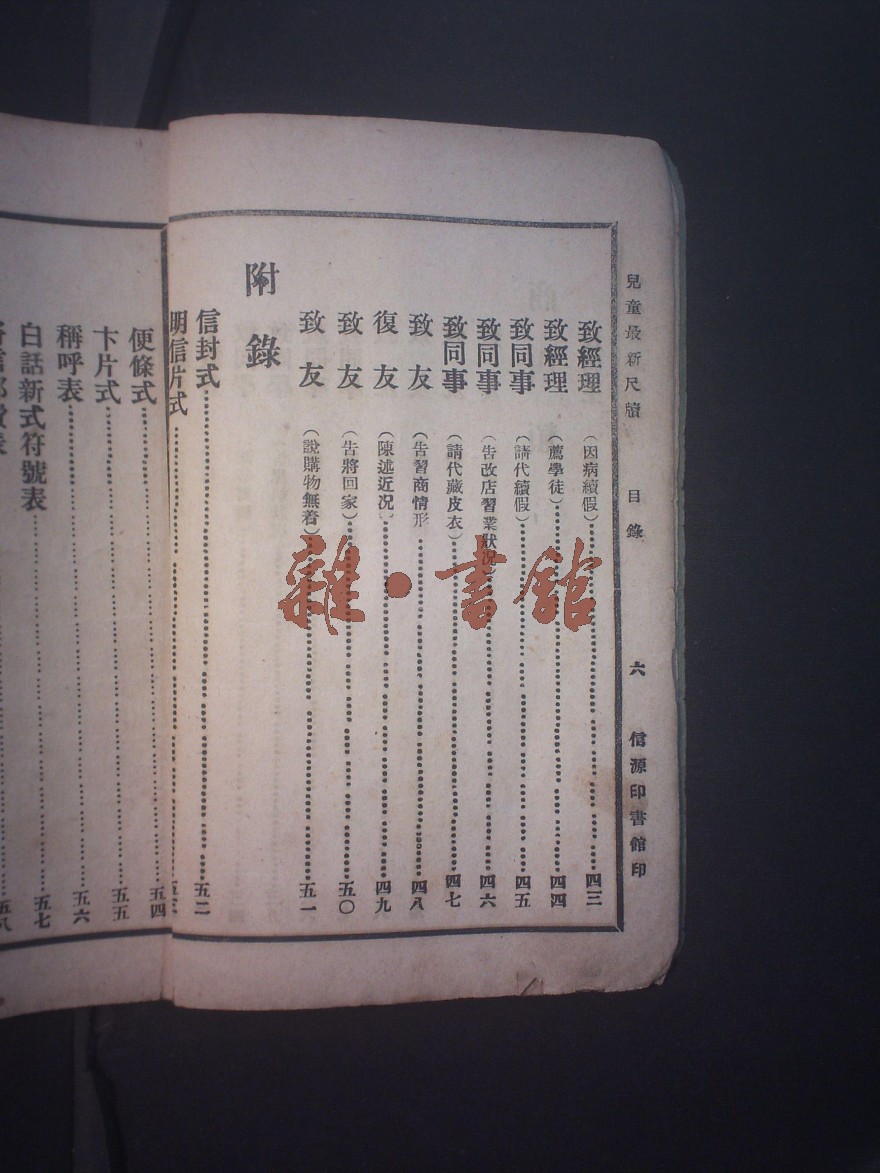 兒童最新尺牘 目錄 六 信源印書館印
致經理 (因病續假) 四三
致經理 (薦學徒) 四四
致同事 (請代續假) 四五
致同事 (告改店習業狀況) 四六
致同事 (請代藏皮衣) 四七
致友 (告習商情形) 四八
復友 (陳述近況) 四九
致友 (告將回家) 五〇
致友 (說購物無着) 五一
附錄
信封式 五二
明信片式 五三
便條式 五四
卞片式 五五
稱呼表 五六
白話新式符號表 五七
五八
雜·書館